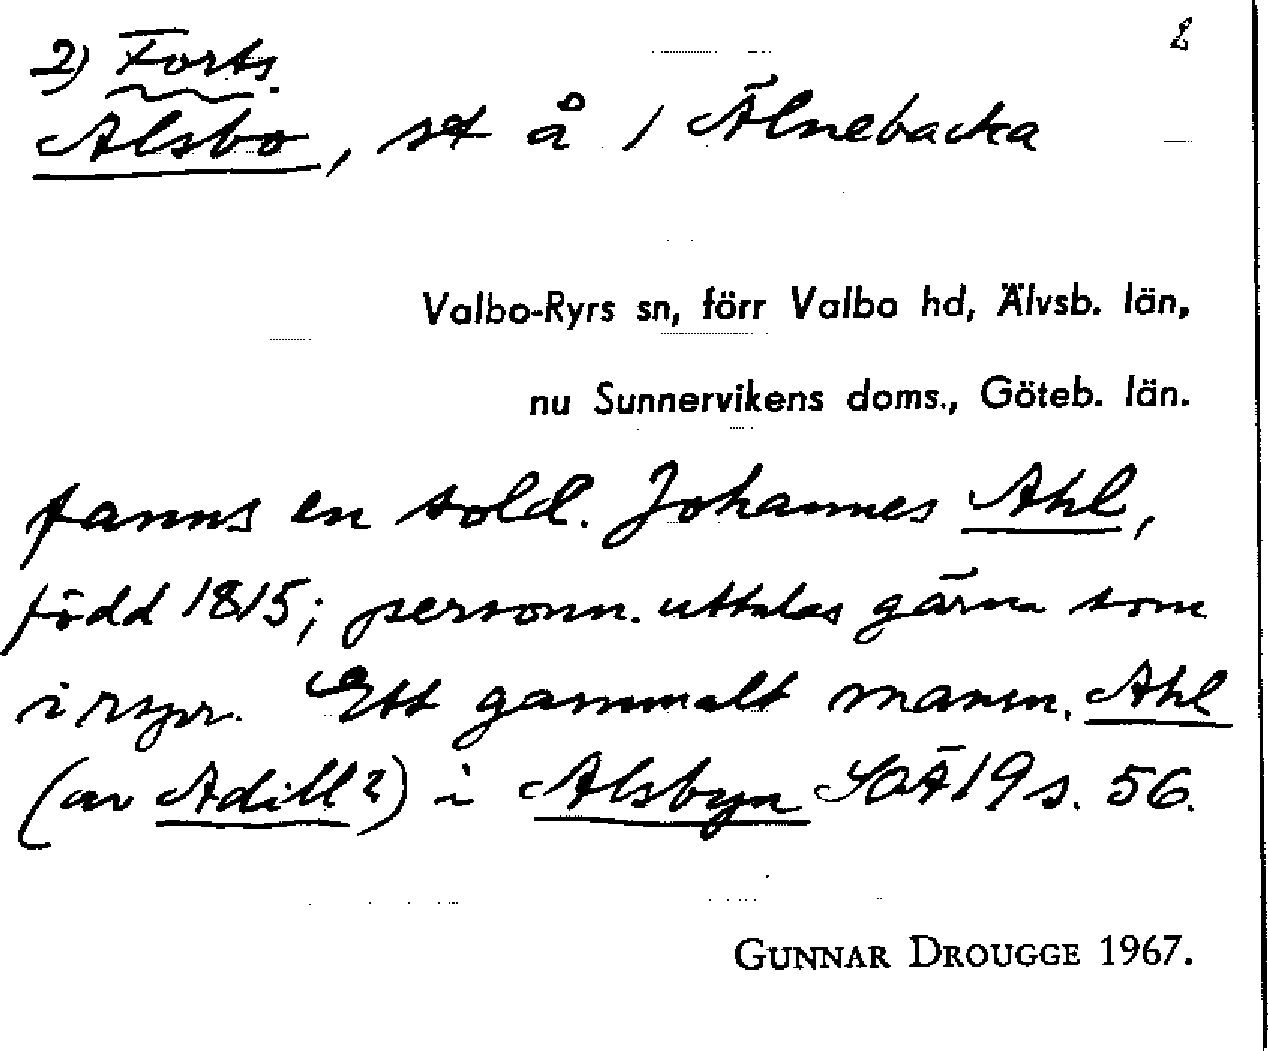 2) Forts. 2
Alsbo, st å 1 Älnebacka
Valbo-Ryrs sn, förr Valbo hd, Älvsb. län,
nu Sunnervikens doms., Göteb. län.
fanns en sold. Johannes Ahl,
född 1815; personn. uttalas gärna som
i rspr. Ett gammalt mansn. Ahl
(av Adill?) i Alsbyn SOÄ 19 s. 56.
GUNNAR DROUGGE 1967.